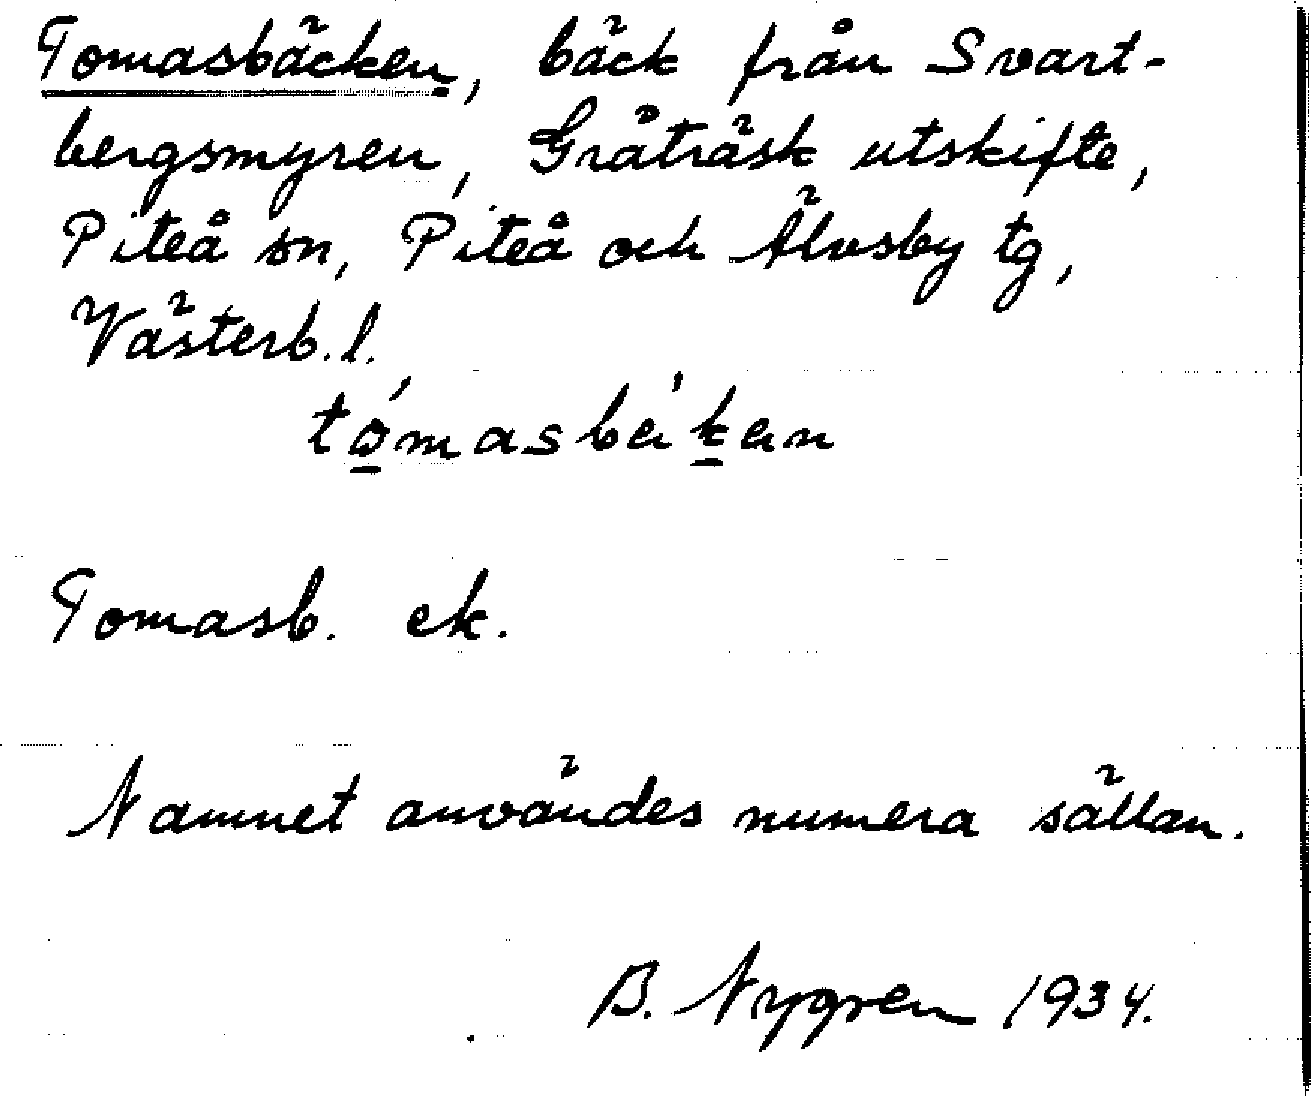 Tomasbäcken, bäck från Svart-
bergsmyren, Gråträsk utskifte,
Piteå sn, Piteå och Älvsby tg,
Västerb. l.
to̲´masbä'k̲en
Tomasb. ek.
Namnet användes numera sällan.
B. Nygren 1934.